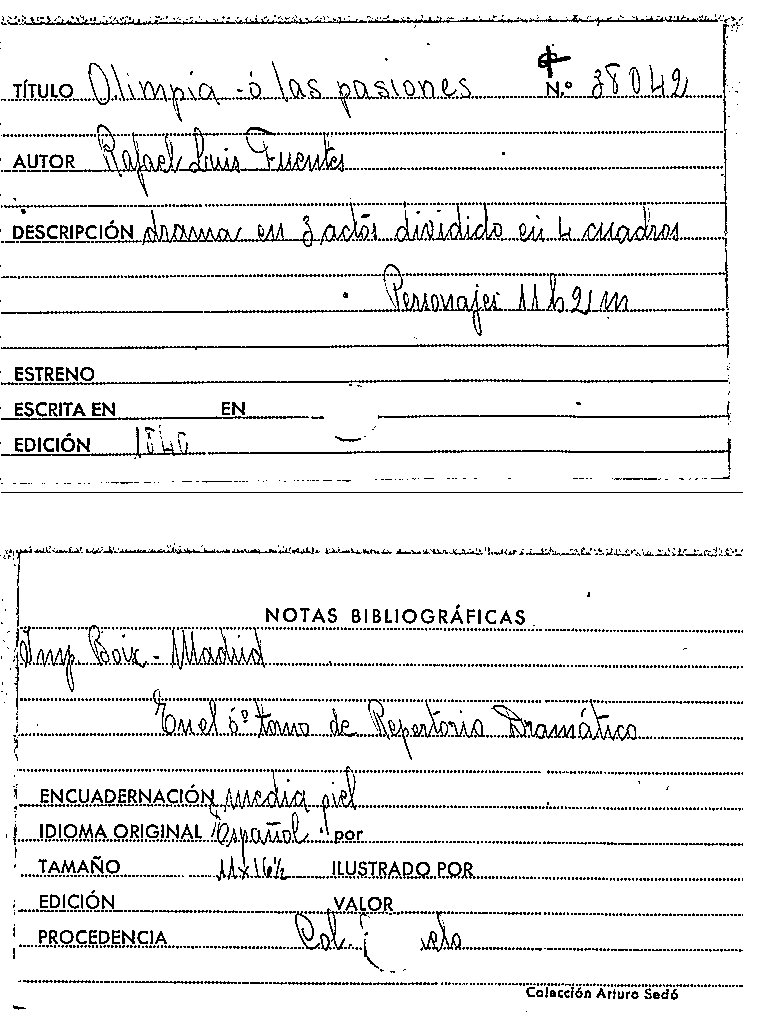 TÍTULO Olimpia - ó las pasiones N.º 38042
AUTOR Rafael Luis Fuentes
DESCRIPCIÓN drama en 3 actos dividido en 4 cuadros
Personajes 11 h 2 m
ESTRENO
ESCRITA EN EN
EDICIÓN 1840
NOTAS BIBLIOGRÁFICAS
Imp. Boix - Madrid
En el 6º tomo de Repertorio Dramático
ENCUADERNACIÓN media piel
IDIOMA ORIGINAL Español por
TAMAÑO 11x16½ ILUSTRADO POR
EDICIÓN VALOR
PROCEDENCIA Col.
Colección Arturo Sedó